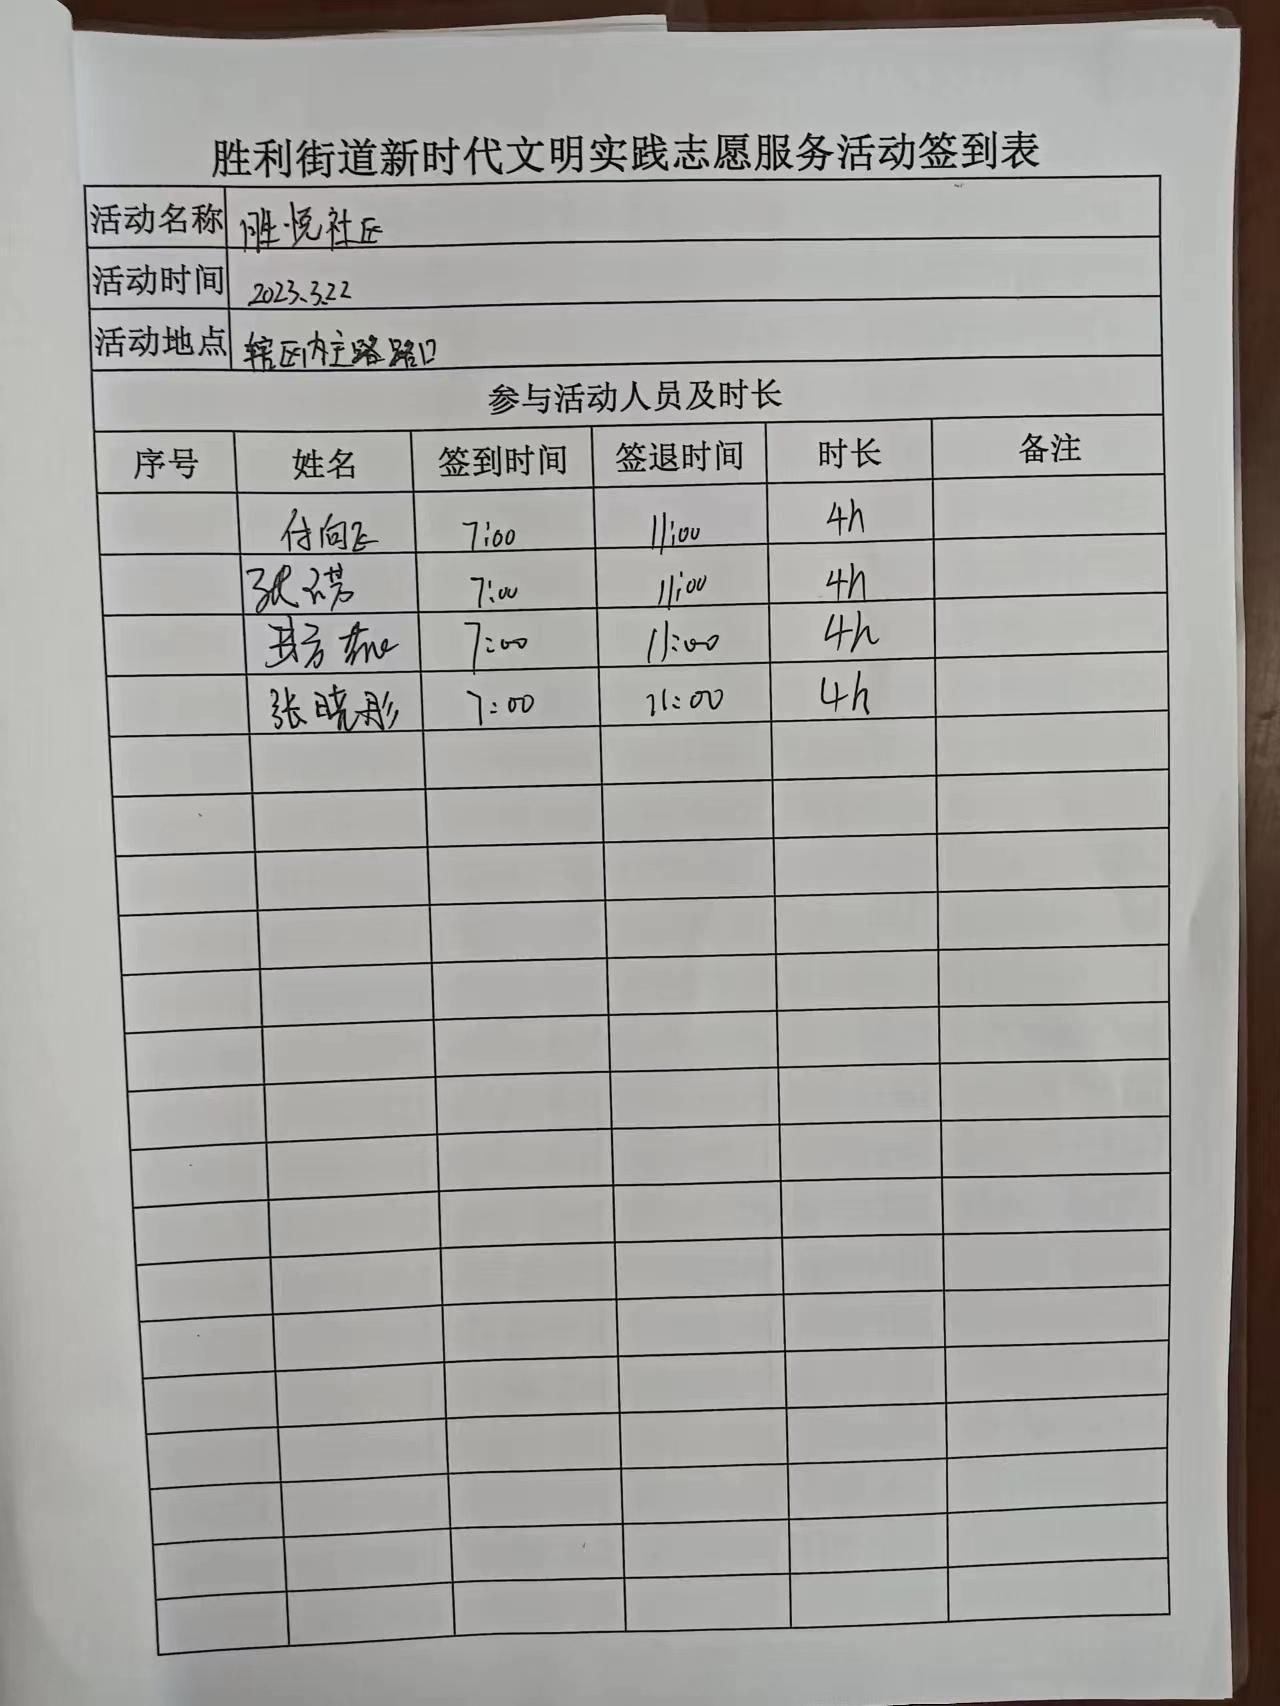 胜利街道新时代文明实践志愿服务活动签到表
活动名称 胜悦社区
活动时间 2023.3.22
活动地点 辖区内主路路口
参与活动人员及时长
序号 姓名 签到时间 签退时间 时长 备注
付向正 7:00 11:00 4h
张诺 7:00 11:00 4h
7:00 11:00 4h
张晓彤 7:00 11:00 4h